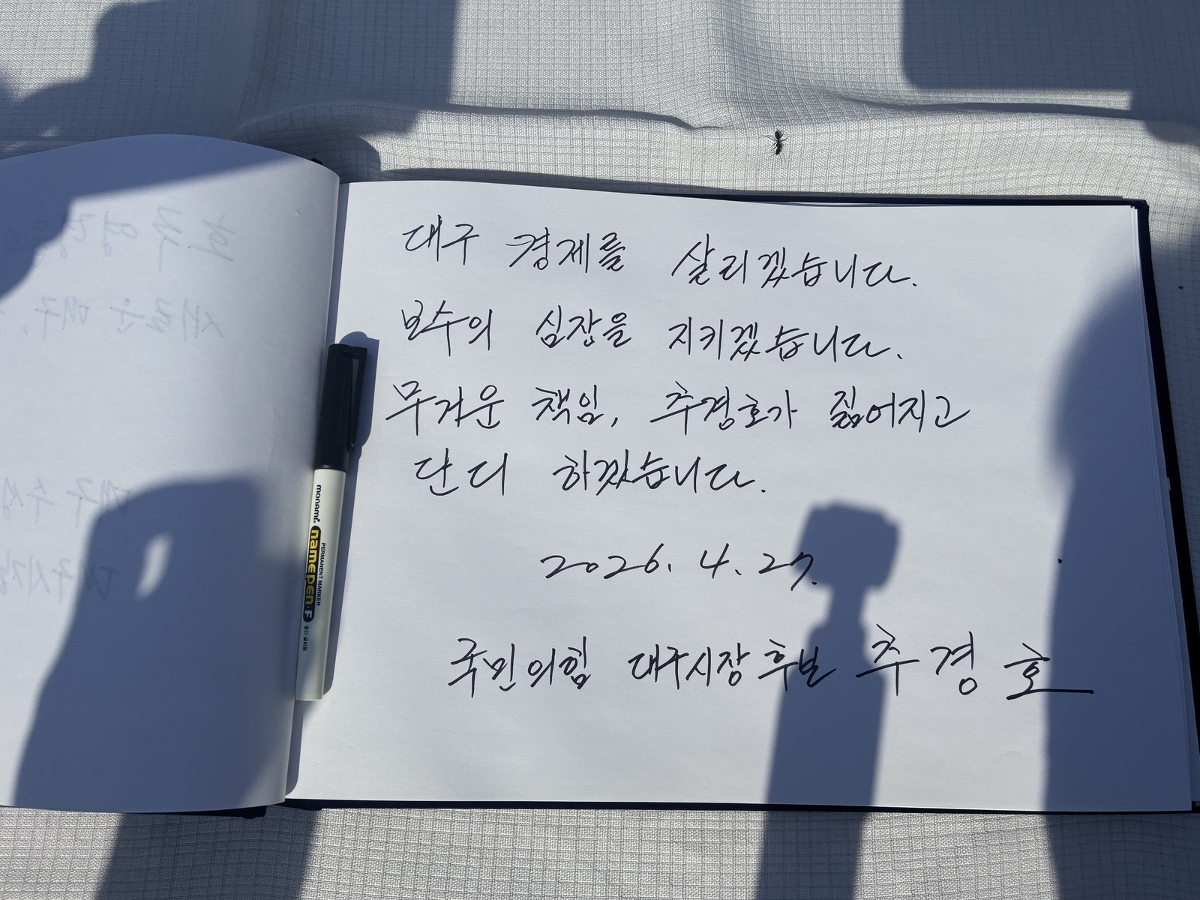 대구 경제를 살리겠습니다.
보수의 심장을 지키겠습니다.
무거운 책임, 추경호가 짊어지고
단디 하겠습니다.
2026. 4. 27.
국민의힘 대구시장 후보 추경호
monami
namepen F
PERMANENT MARKER